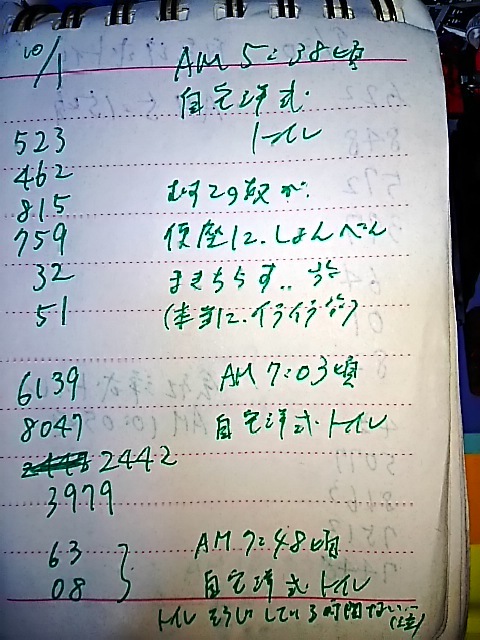 10/1 AM 5:38頃
自宅洋式
トイレ
523
462
815 むすこの奴が、
759 便座に、しょんべん
32 まきちらす..
51 (本当に、イライラ
6139 AM 7:03頃
8047 自宅洋式トイレ
2442
3979
63 AM 7:48頃
08 自宅洋式トイレ
トイレそうじしている時間ない
(泣)